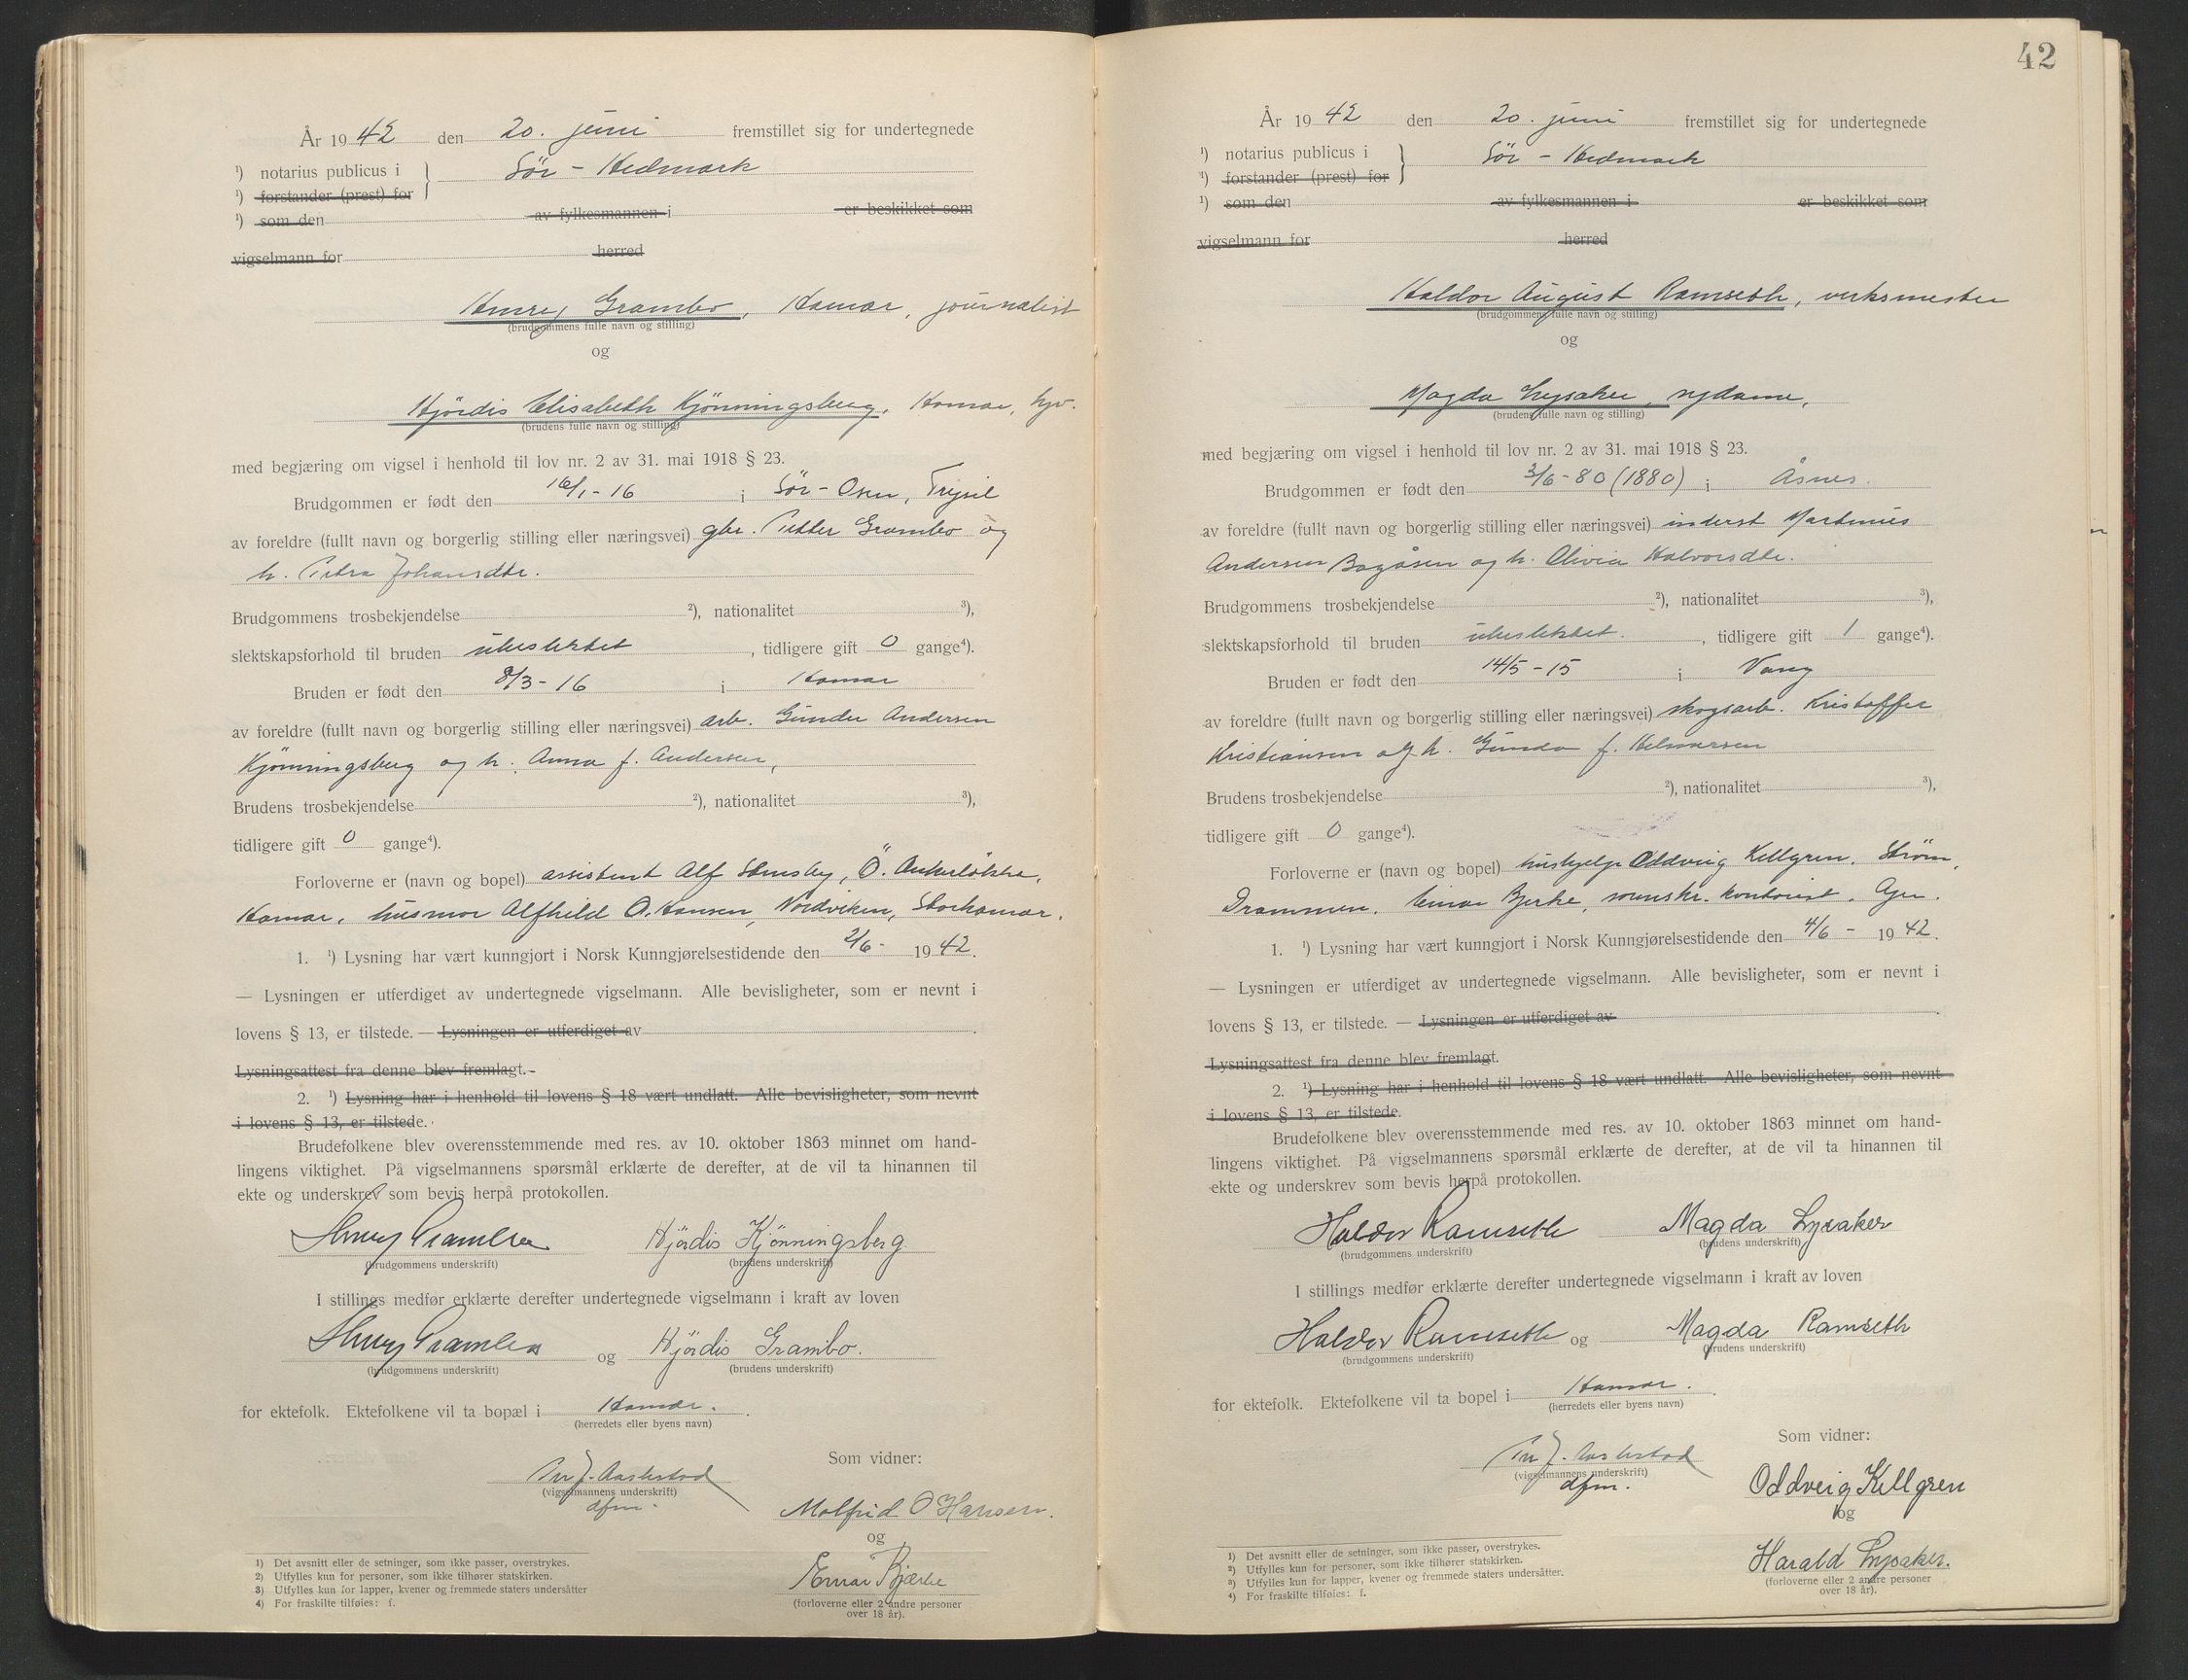 År 1942 den 20. juni fremstillet sig for undertegnede
¹) notarius publicus i } Sör - Hedmark
¹) forstander (prest) for
¹) som den av fylkesmannen i er beskikket som
vigselmann for herred
Henry Grambo, Hamar, journalist
(brudgommens fulle navn og stilling)
og
Hjördis Elisabeth Kjönningsberg, Hamar, hjv.
(brudens fulle navn og stilling)
med begjæring om vigsel i henhold til lov nr. 2 av 31. mai 1918 § 23.
Brudgommen er født den 16/1-16 i Sör-Osen, Trysil
av foreldre (fullt navn og borgerlig stilling eller næringsvei) gbr. Petter Grambo og
h. Petra Johansdtr.
Brudgommens trosbekjendelse ²), nationalitet ³),
slektskapsforhold til bruden ubeslektet, tidligere gift 0 gange⁴).
Bruden er født den 8/3-16 i Hamar
av foreldre (fullt navn og borgerlig stilling eller næringsvei) arb. Gunder Andersen
Kjönningsberg og h. Anna f. Andersen,
Brudens trosbekjendelse ²), nationalitet ³),
tidligere gift 0 gange⁴).
Forloverne er (navn og bopel) assistent Alf Stensby, Ö. Ankerlökka,
Hamar, husmor Alfhild O. Hansen, Nordviken, Storhamar.
1. ¹) Lysning har vært kunngjort i Norsk Kunngjørelsestidende den 2/6- 1942.
— Lysningen er utferdiget av undertegnede vigselmann. Alle bevisligheter, som er nevnt i
lovens § 13, er tilstede. — Lysningen er utferdiget av
Lysningsattest fra denne blev fremlagt. -
2. ¹) Lysning har i henhold til lovens § 18 vært undlatt. Alle bevisligheter, som nevnt
i lovens § 13, er tilstede.
Brudefolkene blev overensstemmende med res. av 10. oktober 1863 minnet om hand-
lingens viktighet. På vigselmannens spørsmål erklærte de derefter, at de vil ta hinannen til
ekte og underskrev som bevis herpå protokollen.
Henry Grambo Hjördis Kjönningsberg
(brudgommens underskrift) (brudens underskrift)
I stillings medfør erklærte derefter undertegnede vigselmann i kraft av loven
Henry Grambo og Hjördis Grambo.
(brudgommens underskritt) (brudens underskrift)
for ektefolk. Ektefolkene vil ta bopæl i Hamar.
(herredets eller byens navn)
Som vidner:
Per J. Aarlestad
(vigselmannens underskrift)
dfm.
Molfrid O Hansen.
og
Einar Bjerke
(forloverne eller 2 andre personer
over 18 år).
1) Det avsnitt eller de setninger, som ikke passer, overstrykes.
2) Utfylles kun for personer, som ikke tilhører statskirken.
3) Utfylles kun for lapper, kvener og fremmede staters undersåtter
4) For fraskilte tilføies: f.
42
År 1942 den 20. juni fremstillet sig for undertegnede
¹) notarius publicus i } Sör - Hedmark
¹) forstander (prest) for
¹) som den av fylkesmannen i er beskikket som
vigselmann for herred
Haldor August Ramseth, verksmester
(brudgommens fulle navn og stilling)
og
Magda Lysaker, sydame,
(brudens fulle navn og stilling)
med begjæring om vigsel i henhold til lov nr. 2 av 31. mai 1918 § 23.
Brudgommen er født den 3/6-80 (1880) i Åsnes.
av foreldre (fullt navn og borgerlig stilling eller næringsvei) inderst Martinius
Andersen Bogåsen og h. Olivia Halvorsdtr.
Brudgommens trosbekjendelse ²), nationalitet ³),
slektskapsforhold til bruden ubeslektet., tidligere gift 1 gange⁴).
Bruden er født den 14/5-15 i Vang
av foreldre (fullt navn og borgerlig stilling eller næringsvei) skogsarb. Kristoffer
Kristiansen og h. Gunda f. Helmersen
Brudens trosbekjendelse ²), nationalitet ³),
tidligere gift 0 gange⁴).
Forloverne er (navn og bopel) hushjelp Oddveig Kellgren. Ström,
Drammen. Einar Bjerke, kontorist.
1. ¹) Lysning har vært kunngjort i Norsk Kunngjørelsestidende den 4/6 - 1942.
— Lysningen er utferdiget av undertegnede vigselmann. Alle bevisligheter, som er nevnt i
lovens § 13, er tilstede. — Lysningen er utferdiget av
Lysningsattest fra denne blev fremlagt.
2. ¹) Lysning har i henhold til lovens § 18 vært undlatt. Alle bevisligheter, som nevnt
i lovens § 13, er tilstede.
Brudefolkene blev overensstemmende med res. av 10. oktober 1863 minnet om hand-
lingens viktighet. På vigselmannens spørsmål erklærte de derefter, at de vil ta hinannen til
ekte og underskrev som bevis herpå protokollen.
Haldor Ramseth Magda Lysaker
(brudgommens underskrift) (brudens underskrift)
I stillings medfør erklærte derefter undertegnede vigselmann i kraft av loven
Haldor Ramseth og Magda Ramseth
(brudgommens underskrift) (brudens underskrift)
for ektefolk. Ektefolkene vil ta bopel i Hamar.
(herredets eller byens navn)
Som vidner:
Per J. Aarlestad
(vigselmannens underskrift)
dfm.
Oddveig Kellgren
og
Harald Lysaker.
(forloverne eller 2 andre personer
over 18 år).
¹) Det avsnitt eller de setninger, som ikke passer, overstrykes.
²) Utfylles kun for personer, som ikke tilhører statskirken.
³) Utfylles kun for lapper, kvener og fremmede staters undersåtter.
⁴) For fraskilte tilføies: f.